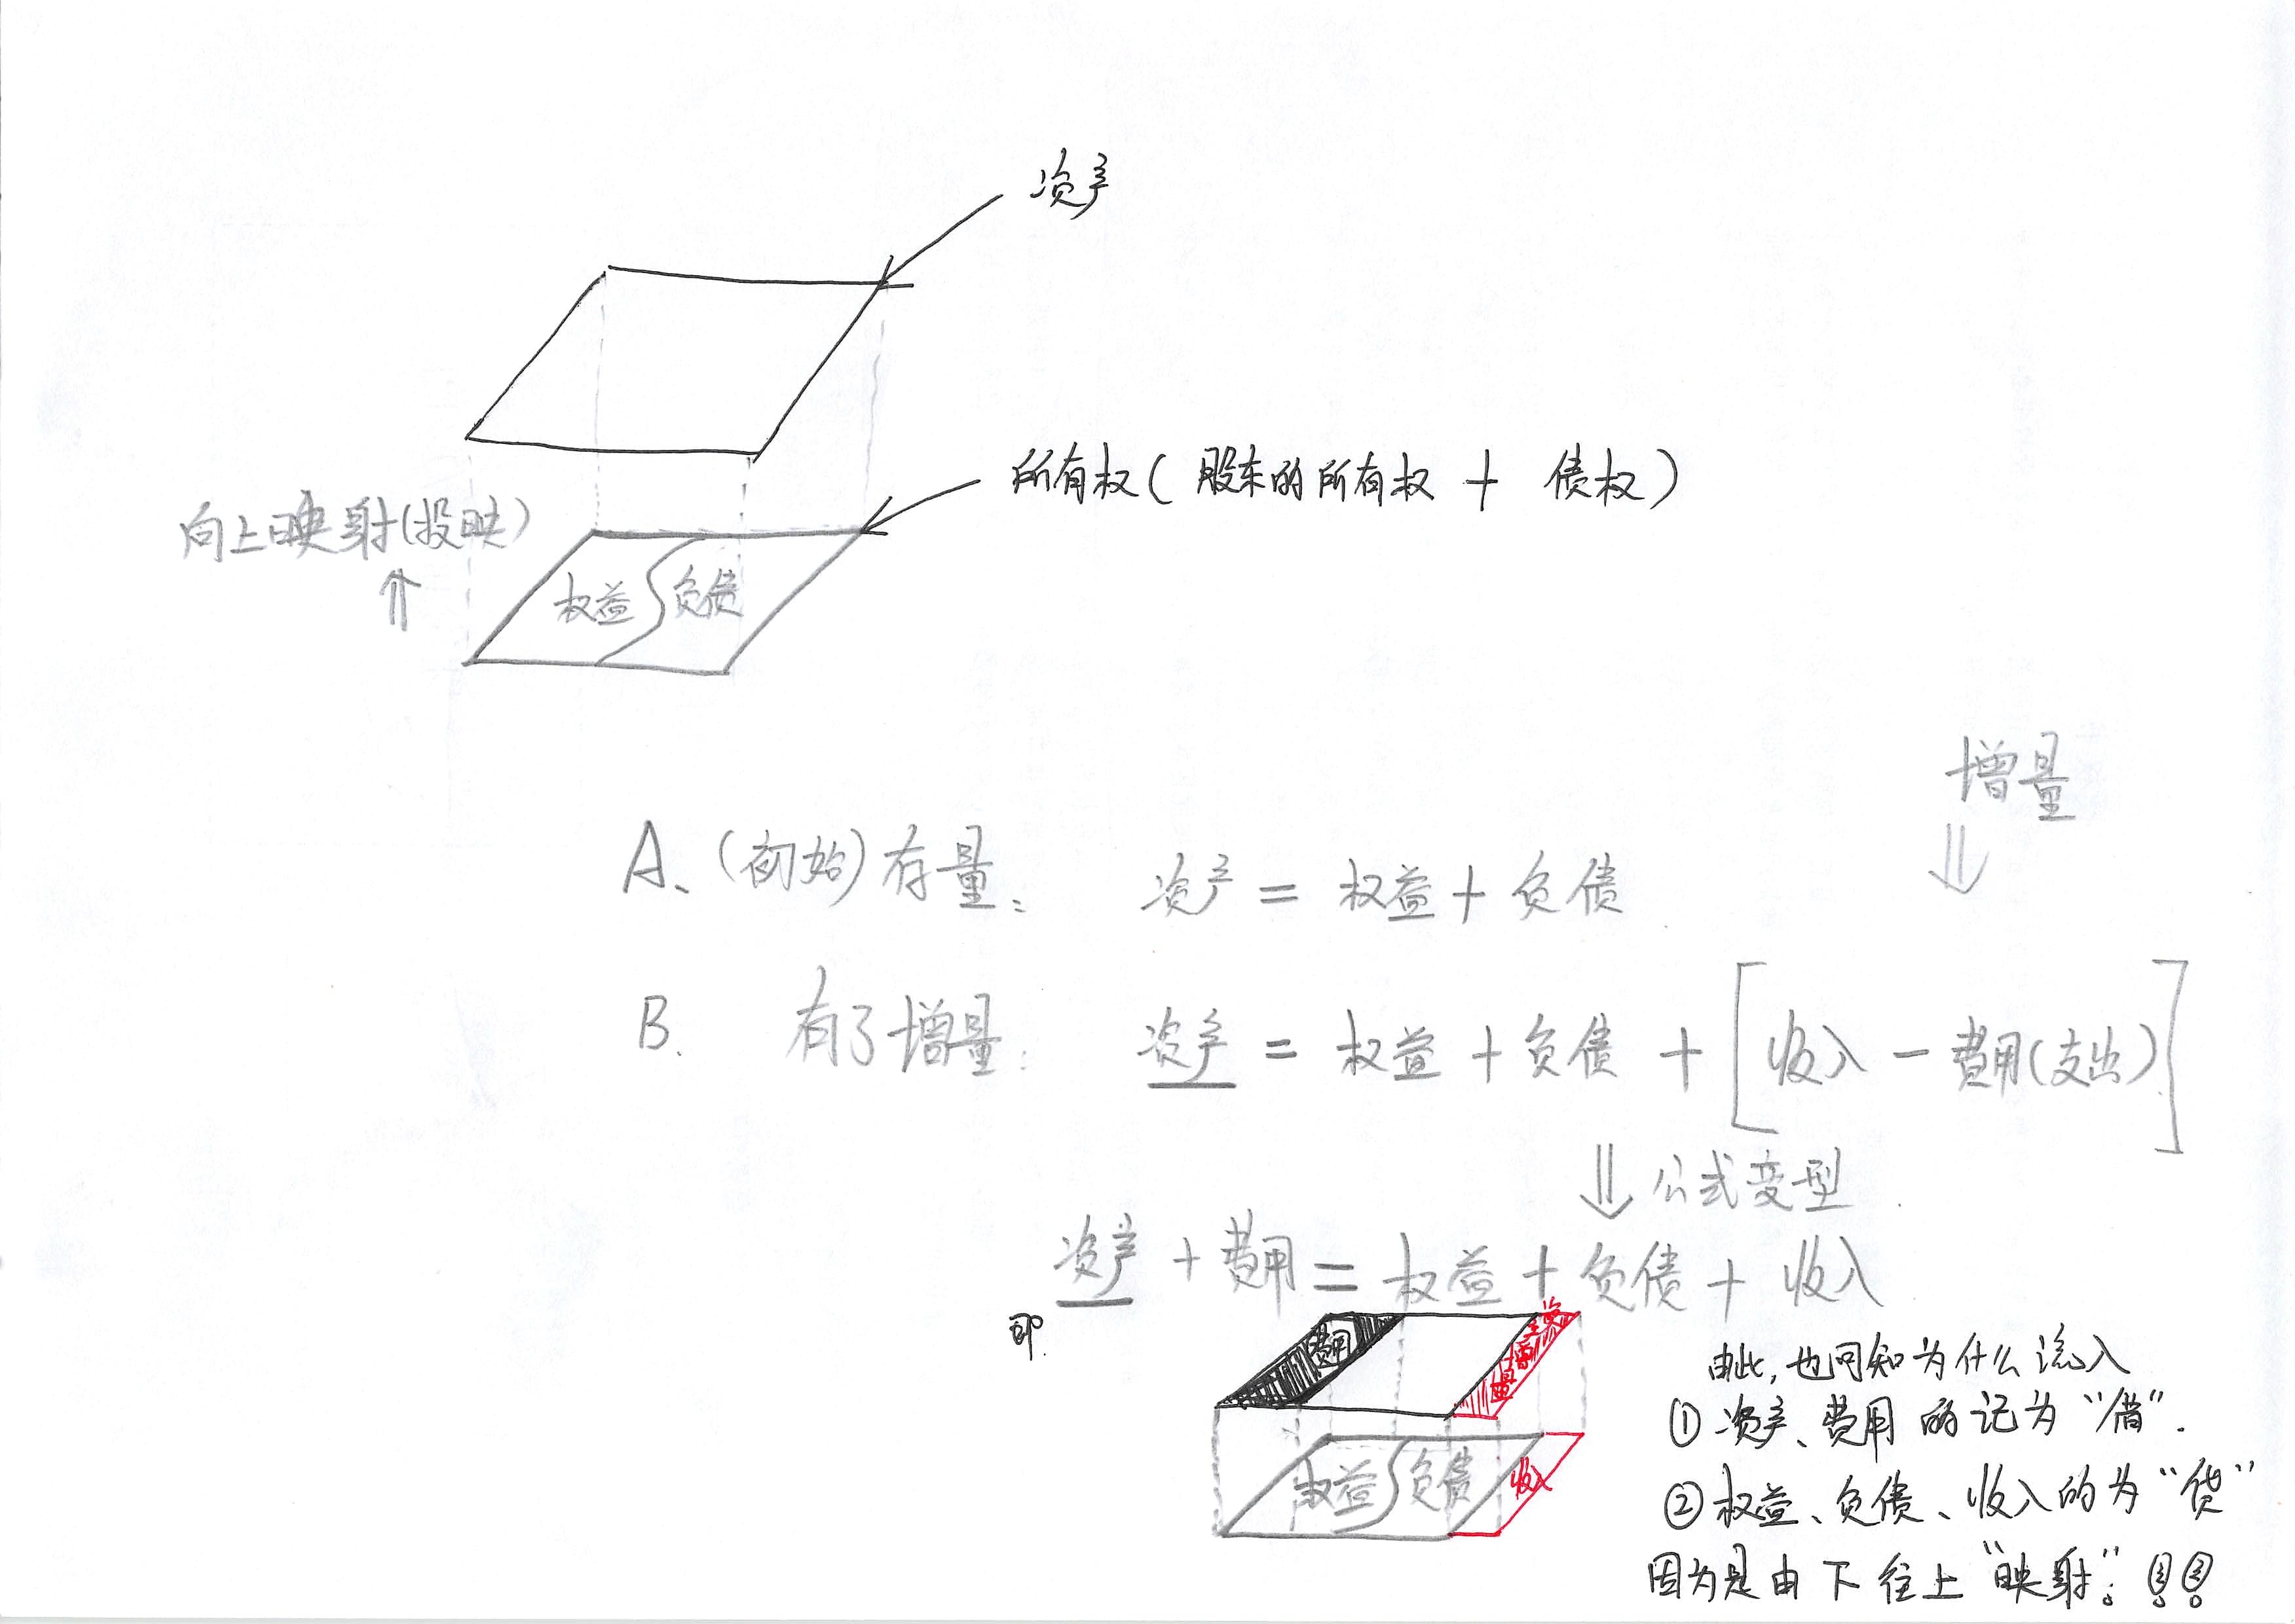 资产
所有权(股东的所有权 + 债权)
向上映射(投映)
⇑
权益 负债
增量
⇓
A、(初始)存量: 资产 = 权益 + 负债
B. 有了增量: 资产 = 权益 + 负债 + [收入 - 费用(支出)]
⇓ 公式变型
资产 + 费用 = 权益 + 负债 + 收入
即
费用
资产增量
权益 负债 收入
由此,也可知为什么流入
①资产、费用的记为“借”.
②权益、负债、收入的为“贷”
因为是由下往上“映射”!!!